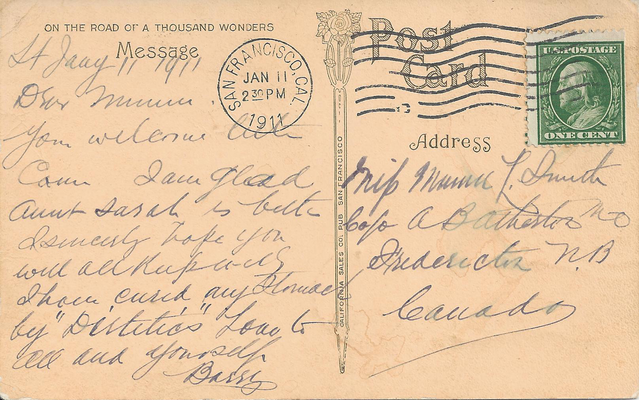 ON THE ROAD OF A THOUSAND WONDERS
Message
Post
Card
Address
SAN FRANCISCO, CAL.
JAN 11
2 30 PM
1911
U.S. POSTAGE
ONE CENT
CALIFORNIA SALES CO. PUB. SAN FRANCISCO
Jany 11 1911
Dear Minnie
Your welcome
Came I am glad
Aunt Sarah is better
I sincerely hope you
will all keep well
I have cured my stomac
by "Dietetics" Love to
all and yourself
Barry
Miss Minnie L. Smith
c/o A
Fredericton N.B
Canada